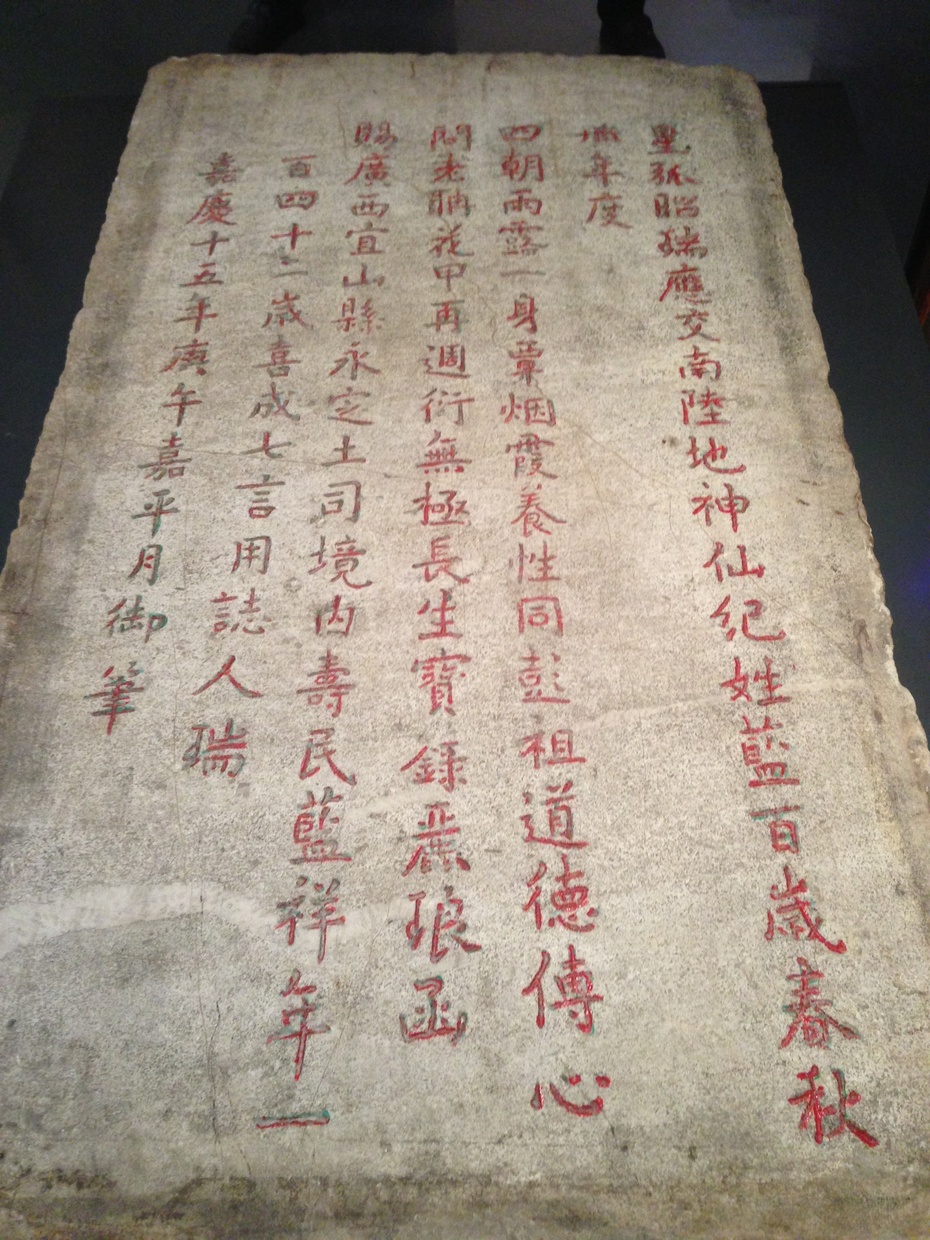 星弧昭瑞應交南陸地神仙紀姓藍百歲春秋
卌年度
四朝雨露一身覃烟霞養性同彭祖道德傳心
問老聃花甲再週衍無極長生寶錄麗琅函
賜廣西宜山縣永定土司境內壽民藍祥年一
百四十二歲喜成七言用誌人瑞
嘉慶十五年庚午嘉平月御筆